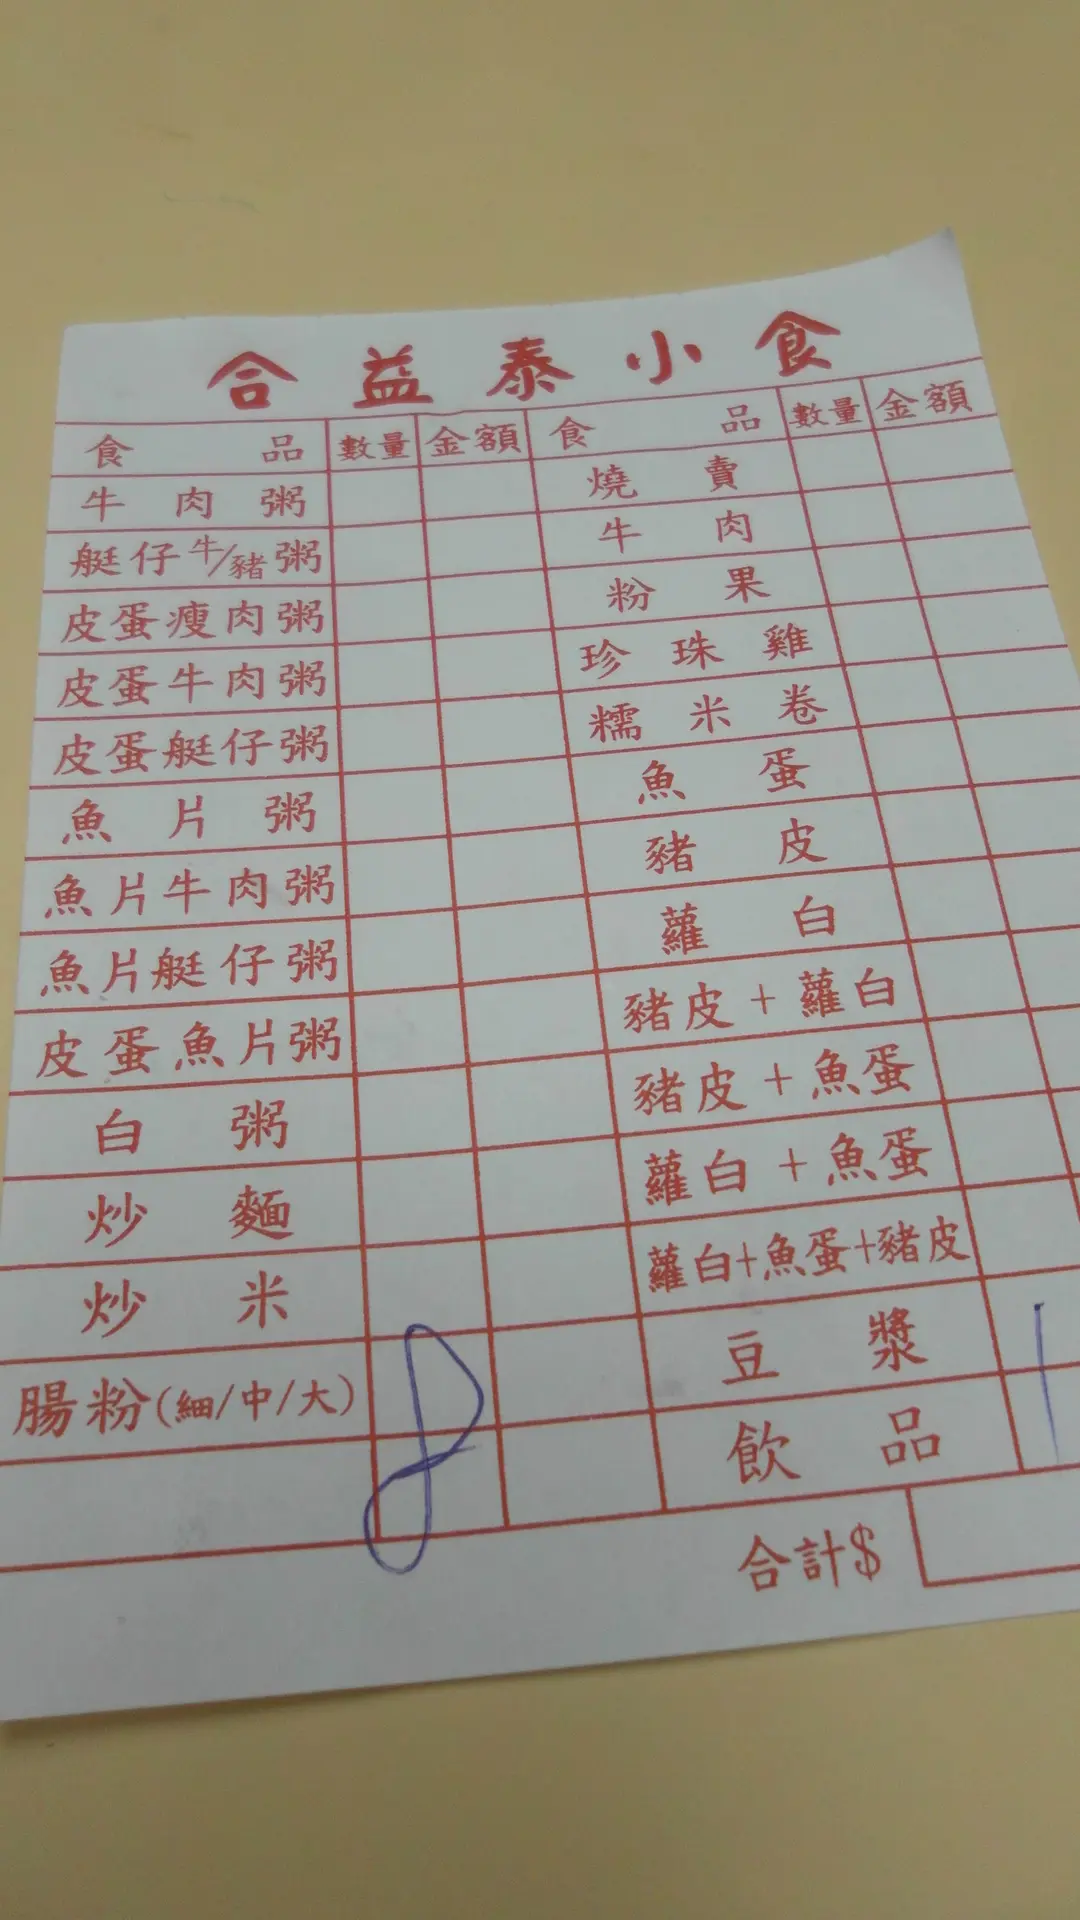 合益泰小食
食品 數量 金額 食品 數量 金額
牛肉粥
艇仔牛/豬粥
皮蛋瘦肉粥
皮蛋牛肉粥
皮蛋艇仔粥
魚片粥
魚片牛肉粥
魚片艇仔粥
皮蛋魚片粥
白粥
炒麵
炒米
腸粉(細/中/大) 8
燒賣
牛肉
粉果
珍珠雞
糯米卷
魚蛋
豬皮
蘿白
豬皮+蘿白
豬皮+魚蛋
蘿白+魚蛋
蘿白+魚蛋+豬皮
豆漿 1
飲品
合計$